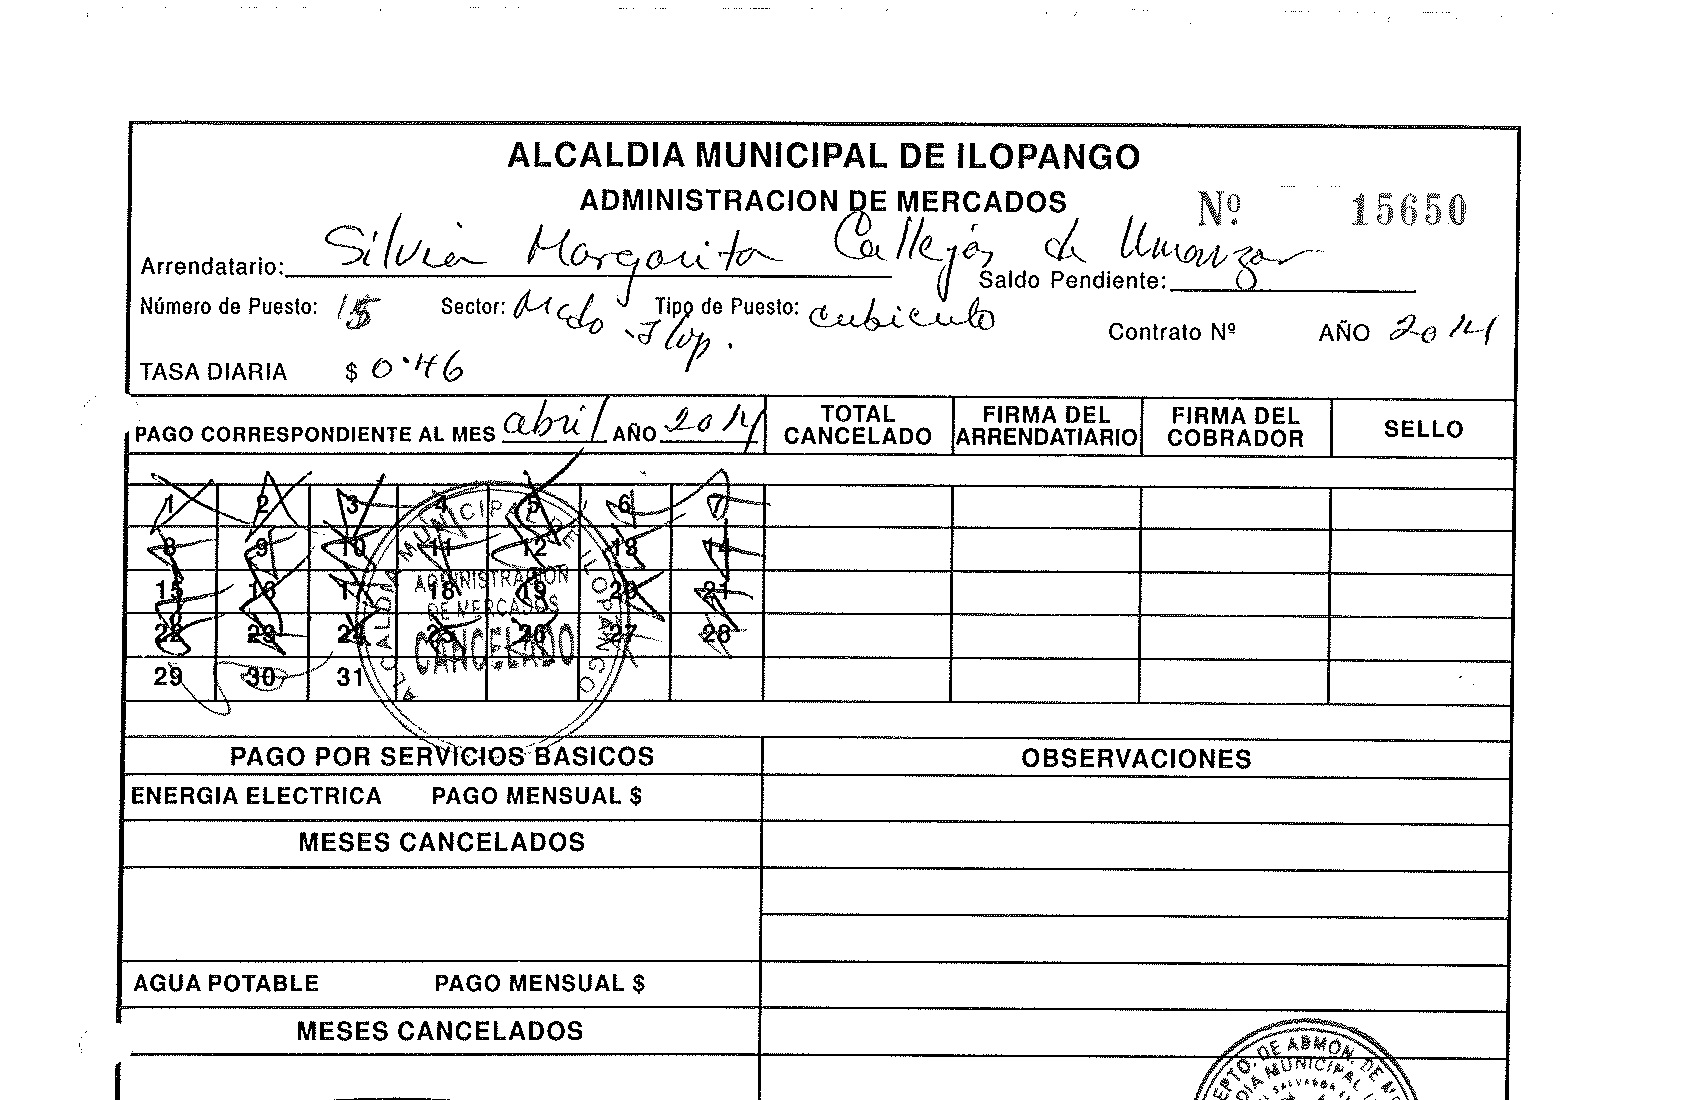 ALCALDIA MUNICIPAL DE ILOPANGO
ADMINISTRACION DE MERCADOS
Nº 15650
Arrendatario: Silvia Margarita Callejas de Umanzor
Saldo Pendiente:
Número de Puesto: 15 Sector: Mcdo. Ilop. Tipo de Puesto: cubiculo
Contrato Nº AÑO 2014
TASA DIARIA $ 0.46
PAGO CORRESPONDIENTE AL MES abril AÑO 2014 TOTAL CANCELADO FIRMA DEL ARRENDATIARIO FIRMA DEL COBRADOR SELLO
1 2 3 4 5 6 7
8 9 10 11 12 13 14
15 16 17 18 19 20 21
22 23 24 25 26 27 28
29 30 31
ALCALDIA MUNICIPAL DE ILOPANGO
ADMINISTRACION
DE MERCADOS
CANCELADO
PAGO POR SERVICIOS BASICOS OBSERVACIONES
ENERGIA ELECTRICA PAGO MENSUAL $
MESES CANCELADOS
AGUA POTABLE PAGO MENSUAL $
MESES CANCELADOS
DEPTO. DE ADMON. DE
MUNICIPAL
SALVADOR